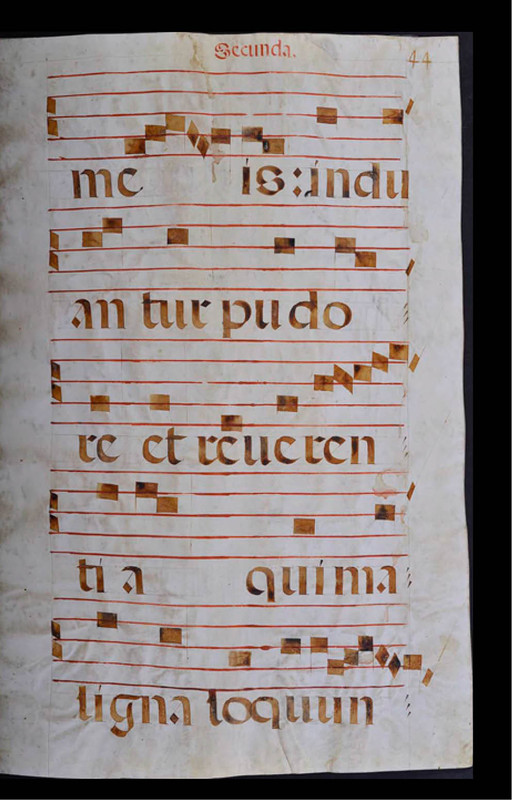 Secunda. 44
me is: indu
an tur pu do
re et reue ren
ti a qui ma
ligna loquun